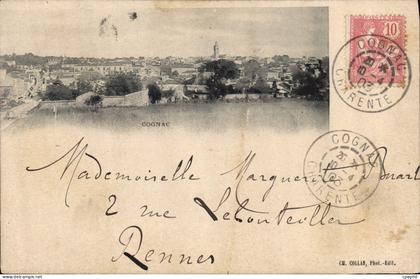 10
COGNAC
CHARENTE
COGNAC
COGNAC
CHARENTE
Mademoiselle Marguerite
2 rue Letonteillier
Rennes
CH. COLLAS, Phot.-Edit.